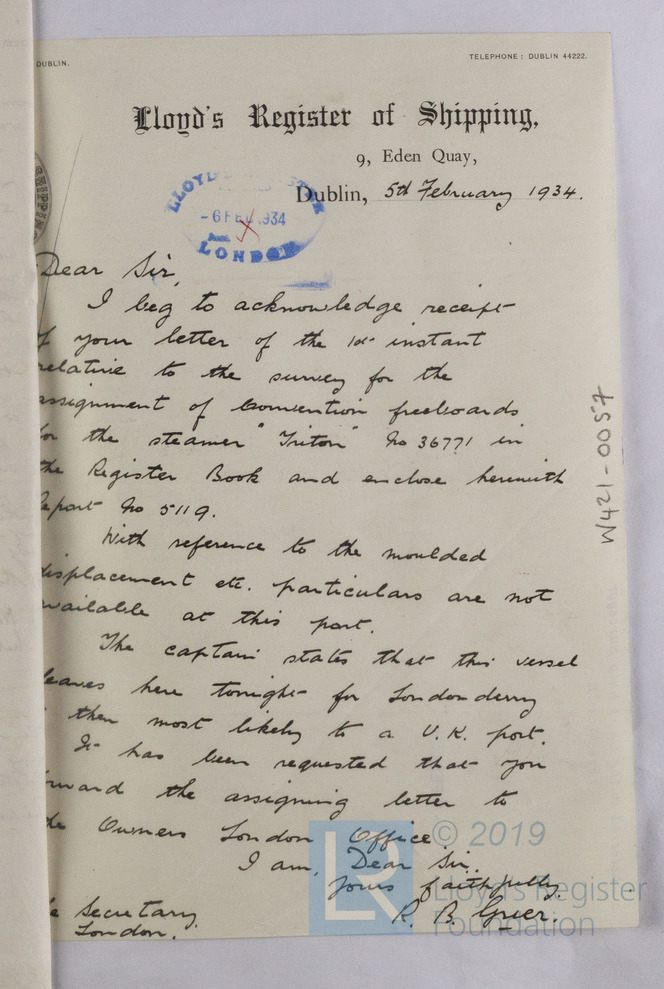 DUBLIN.
TELEPHONE: DUBLIN 44222.
Lloyd's Register of Shipping,
9, Eden Quay,
Dublin, 5th February 1934.
LLOYD'S
-6 FEB 1934
LONDON
Dear Sir,
I beg to acknowledge receipt
f your letter of the 1st instant
relative to the survey for the
assignment of Convention freeboards
for the steamer "Triton" No 36771 in
the Register Book and enclose herewith
Report No 5119.
With reference to the moulded
displacement etc. particulars are not
available at this port.
The captain states that this vessel
leaves here tonight for Londonderry
then most likely to a U.K. port.
It has been requested that you
rward the assigning letter to
the Owners London Office.
I am, Dear Sir,
Yours faithfully,
R. B. Greer.
e Secretary,
London.
W421-0057
© 2019
LR
Lloyd's Register
Foundation